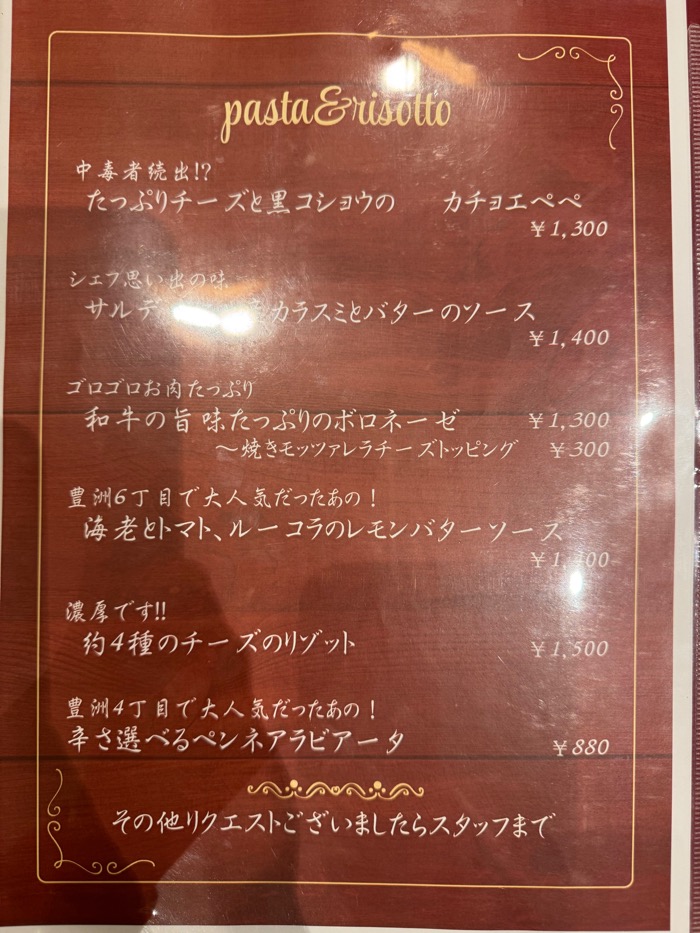 pasta&risotto
中毒者続出!?
たっぷりチーズと黒コショウの カチョエペペ
￥1,300
シェフ思い出の味
サルデ カラスミとバターのソース
￥1,400
ゴロゴロお肉たっぷり
和牛の旨味たっぷりのボロネーゼ ￥1,300
～焼きモッツァレラチーズトッピング ￥300
豊洲6丁目で大人気だったあの！
海老とトマト、ルーコラのレモンバターソース
￥1,400
濃厚です!!
約4種のチーズのリゾット ￥1,500
豊洲4丁目で大人気だったあの！
辛さ選べるペンネアラビアータ ￥880
その他リクエストございましたらスタッフまで